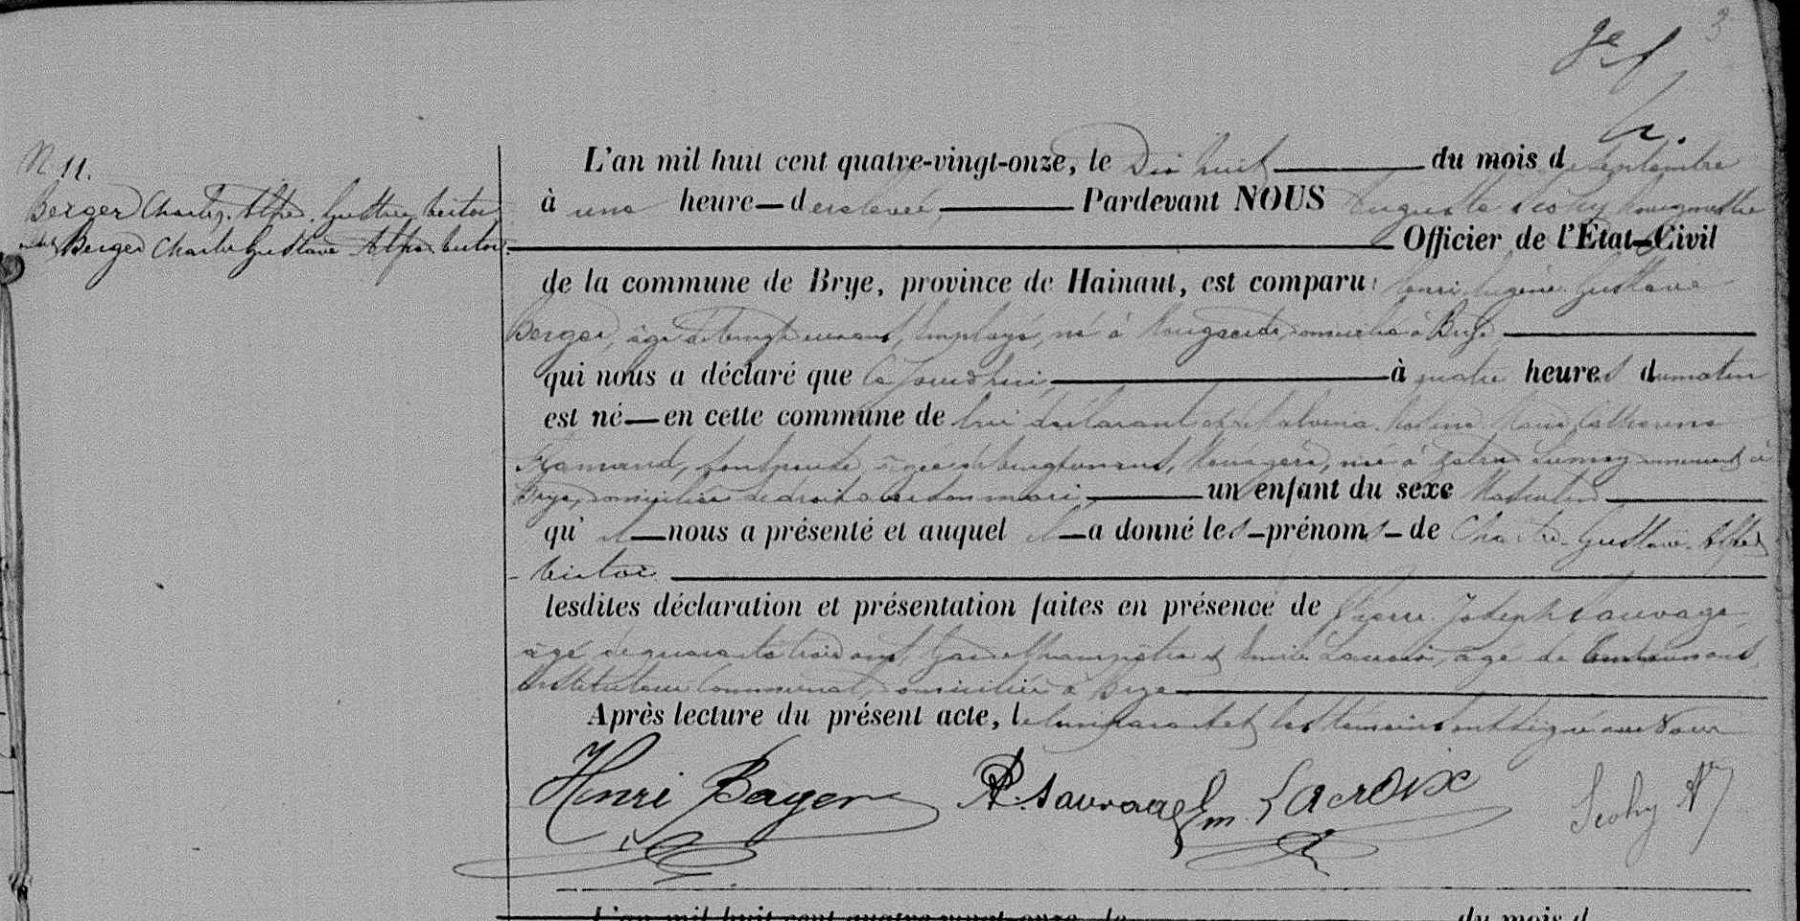 3
N 11.
L'an mil huit cent quatre-vingt-onze, le Dix huit du mois de Septembre
Berger Charles, Alfred, Gustave, Victor
à une heure de relevée, Pardevant NOUS Auguste Scohy Bourgmestre
Berger Charles Gustave Alfred Victor.
Officier de l'État-Civil
de la commune de Brye, province de Hainaut, est comparu Henri Eugène Gustave
Berger, âgé de vingt ans, Employé, né à domicilié à Brye,
qui nous a déclaré que ce jourd'hui, à quatre heures du matin
est né en cette commune de lui déclarant et de Malvina Marie
Flamand, son épouse, âgée de vingt ans, Ménagère, née à à
Brye, domiciliée de droit avec son mari un enfant du sexe Masculin
qu' il nous a présenté et auquel il a donné les prénoms de Charles Gustave Alfred
Victor
lesdites déclaration et présentation faites en présence de Pierre Joseph Sauvage,
âgé de quarante trois ans, Garde champêtre et Emile Lacroix, âgé de ans,
Instituteur Communal, domiciliés à Brye
Après lecture du présent acte, le comparant et les témoins ont signé avec Nous
Henri Bayer P.J. Sauvage Em. Lacroix Scohy
L'an mil huit cent quatre-vingt-onze, le du mois d